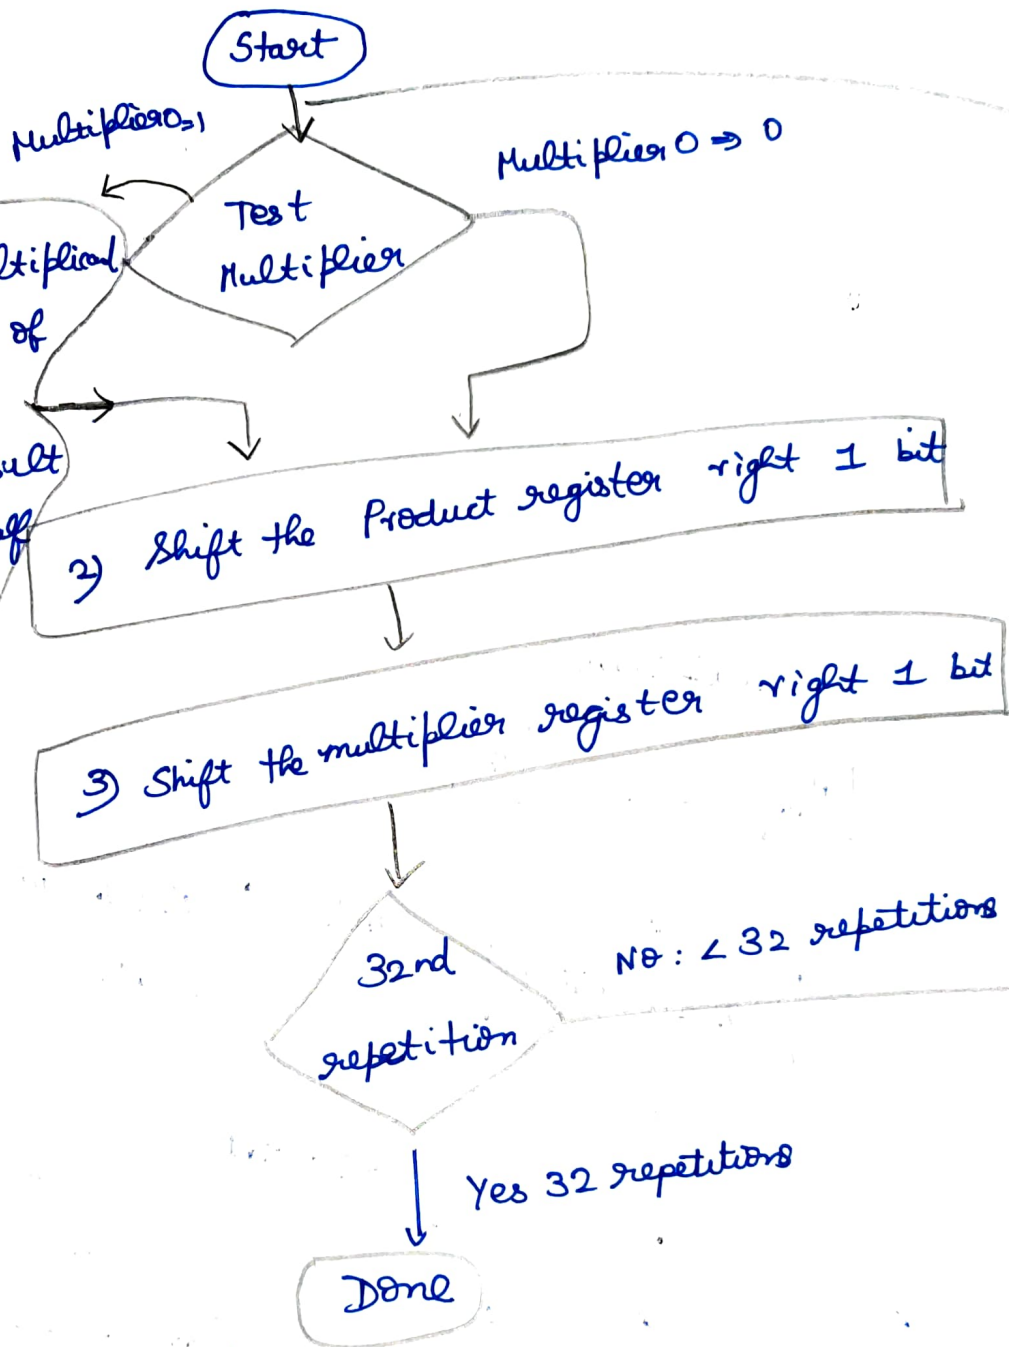 Start
Multiplier0=1
Multiplier 0 ⇒ 0
Test
Multiplier
ltiplicand
of
ult
2) Shift the Product register right 1 bit
3) Shift the multiplier register right 1 bit
32nd
repetition
No: < 32 repetitions
Yes 32 repetitions
Done